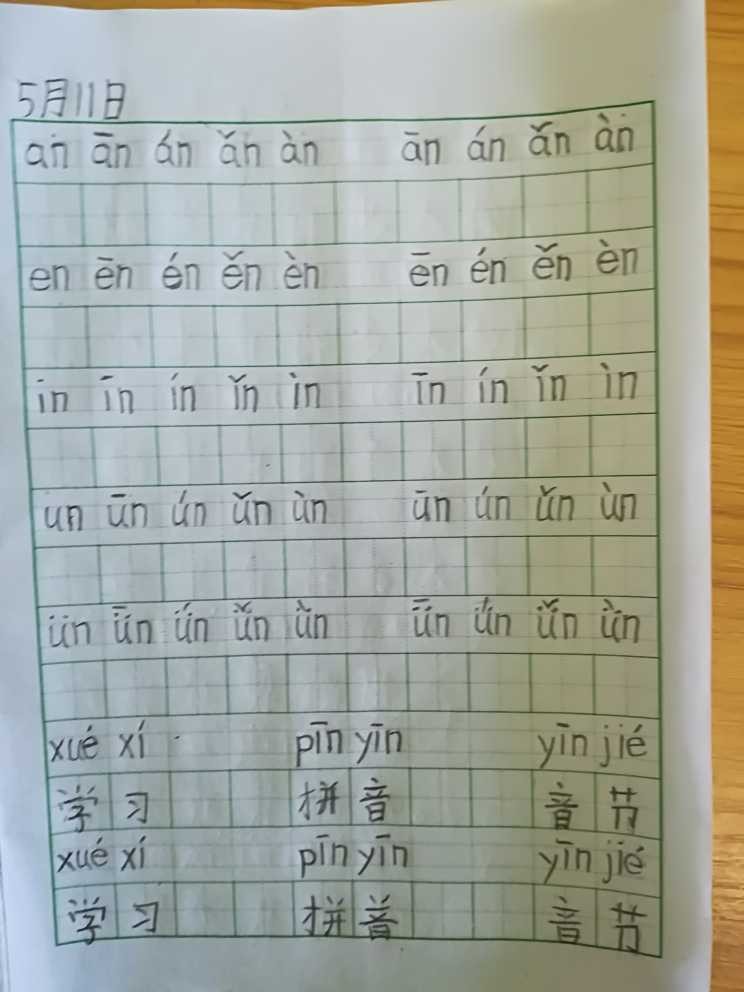 5月11日
an ān án ǎn àn ān án ǎn àn
en ēn én ěn èn ēn én ěn èn
in īn ín ǐn ìn īn ín ǐn ìn
un ūn ún ǔn ùn ūn ún ǔn ùn
ün ǖn ǘn ǚn ǜn ǖn ǘn ǚn ǜn
xué xí pīn yīn yīn jié
学习 拼音 音节
xué xí pīn yīn yīn jié
学习 拼音 音节